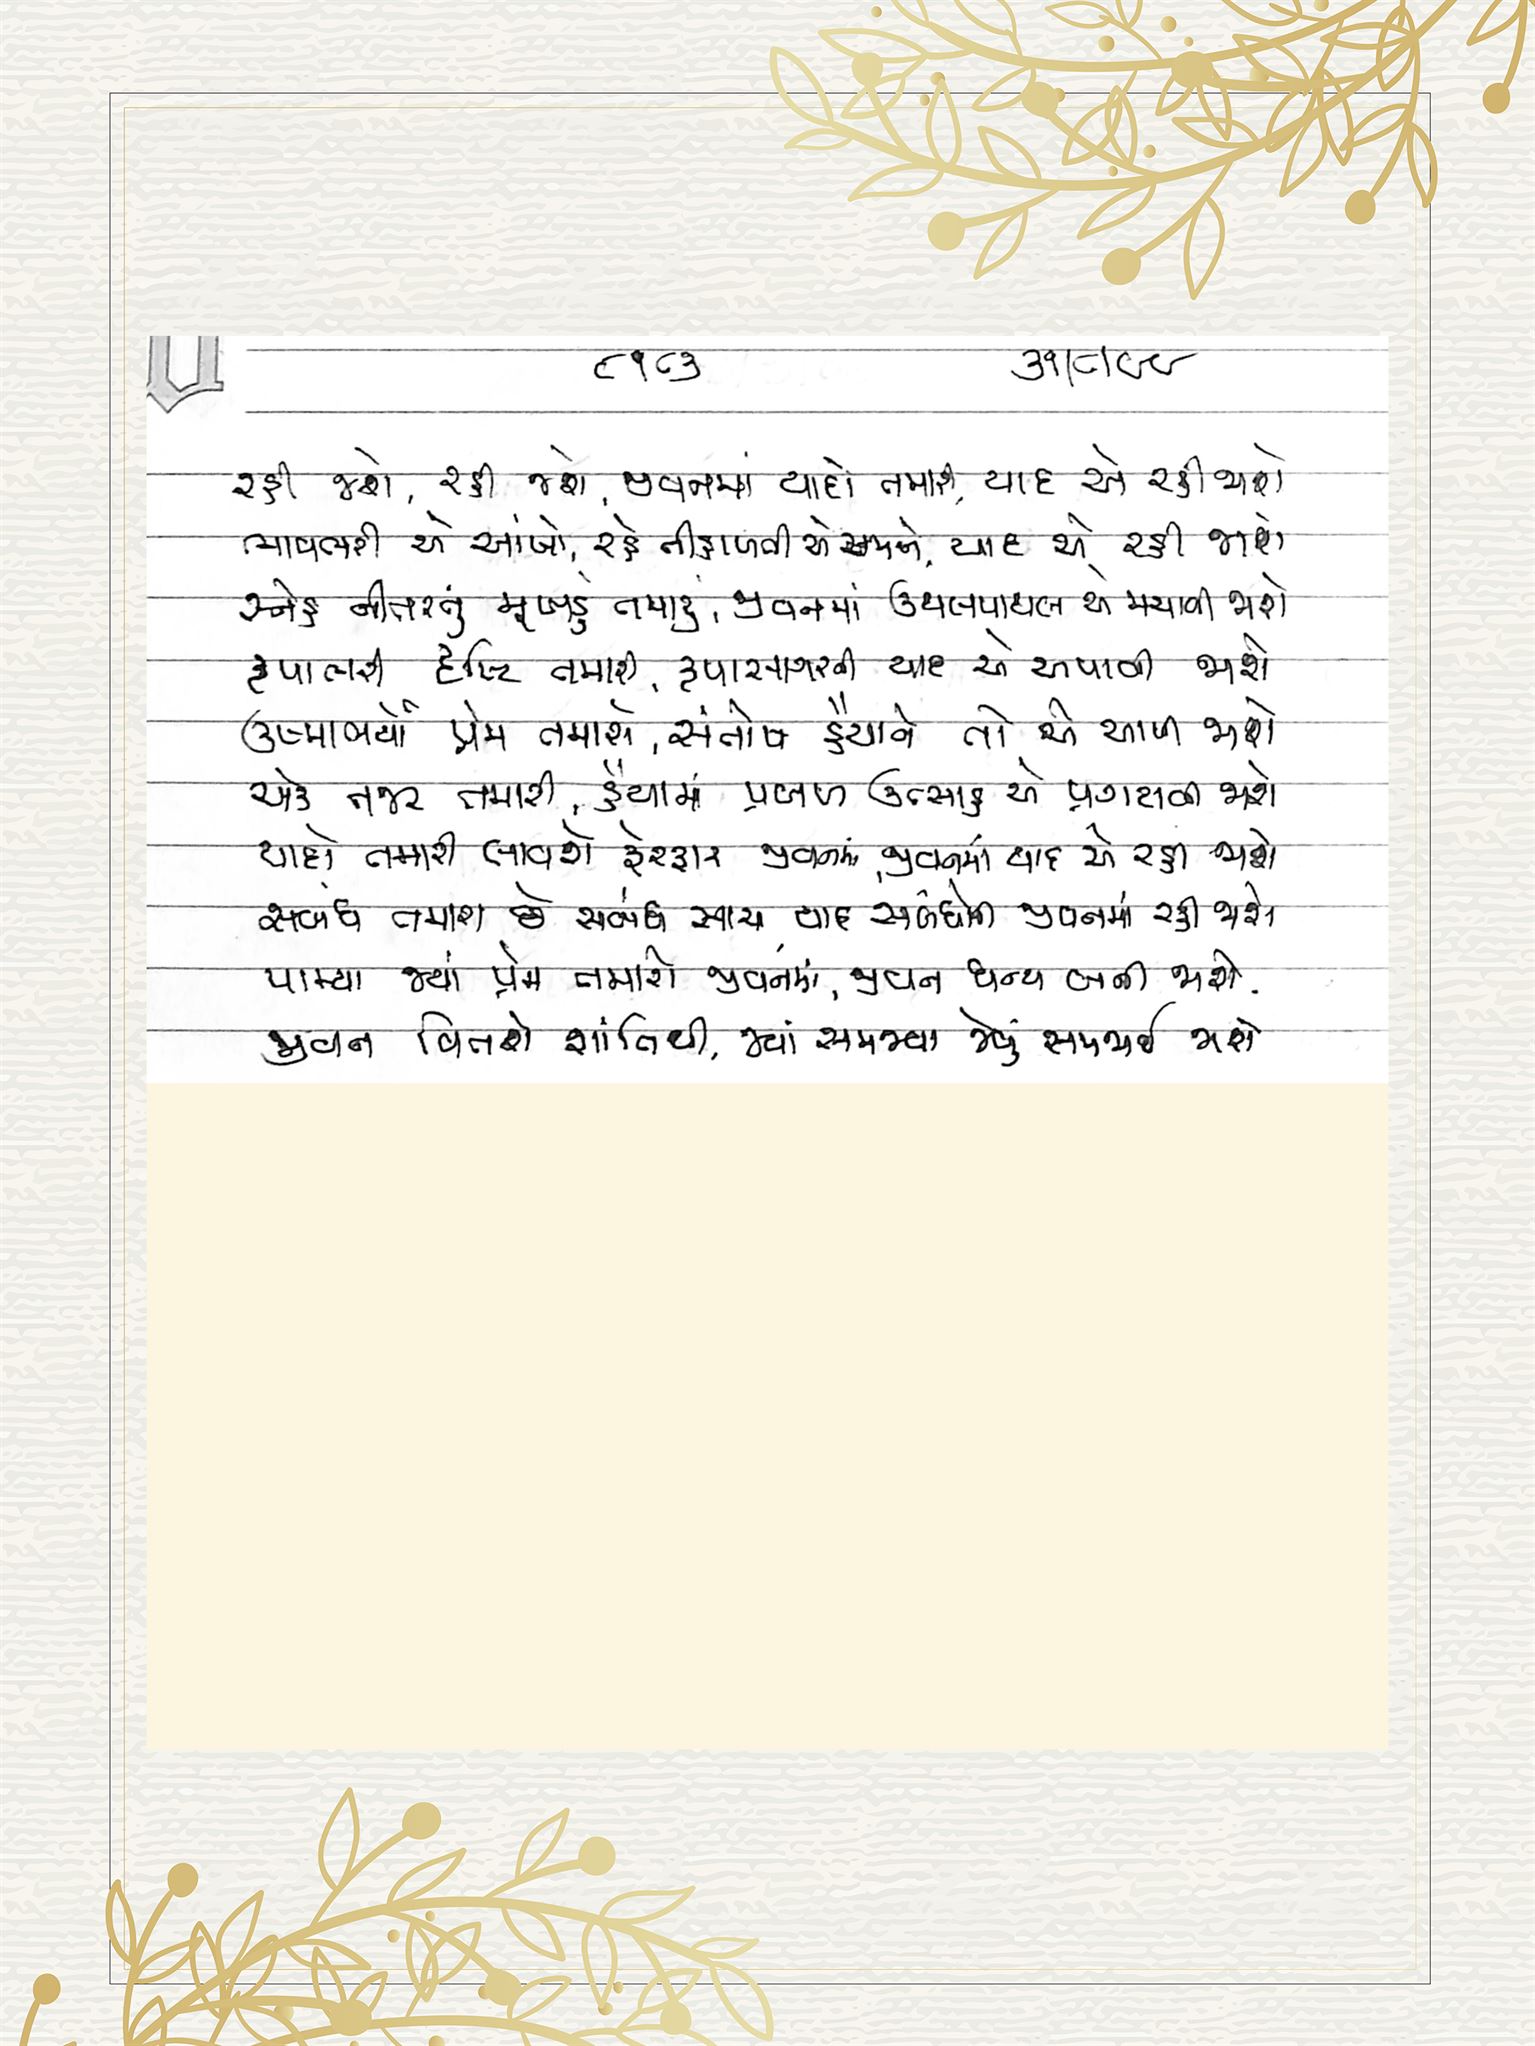 ૯૧૮૩ ૩૧/૮/૯૯
રહી જશે, રહી જશે, જીવનમાં યાદો તમારી, યાદ એ રહી જાશે
ભાવભરી એ આંખો, રહે નીહાળતી એ અમને, યાદ એ રહી જાશે
સ્નેહ નીતરતું મૂખડું તમારું, જીવનમાં ઉથલપાથલ એ મચાવી જાશે
કૃપાભરી દૃષ્ટિ તમારી, કૃપાસાગરની યાદ એ અપાવી જાશે
ઉષ્માભર્યો પ્રેમ તમારો, સંતોષ હૈયાને તો એ આપી જાશે
એક નજર તમારી, હૈયામાં પ્રબળ ઉત્સાહ એ પ્રગટાવી જાશે
યાદો તમારી લાવશે ફેરફાર જીવનમાં, જીવનમાં યાદ એ રહી જાશે
સબંધ તમારા છે સબંધ સાચા, યાદ સબંધોની જીવનમાં રહી જાશે
પામ્યા જ્યાં પ્રેમ તમારો જીવનમાં, જીવન ધન્ય બની જાશે.
જીવન વિતશે શાંતિથી, જ્યાં સમજ્યા જેવું સમજાઈ જાશે